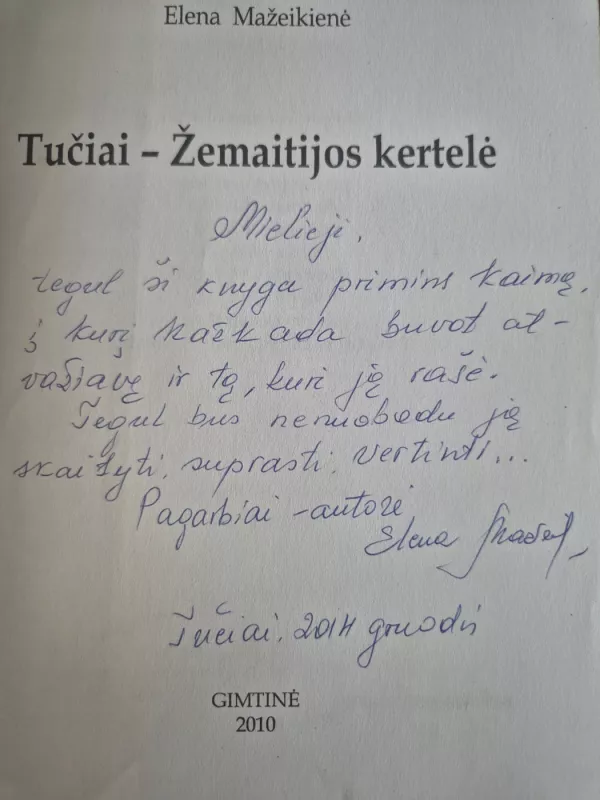 Elena Mažeikienė
Tučiai – Žemaitijos kertelė
Mielieji,
tegul ši knyga primins kaimą,
į kurį kažkada buvot at-
važiavę ir tą, kuri ją rašė.
Tegul bus nenuobodu ją
skaityti, suprasti, vertinti...
Pagarbiai - autorė
Elena
Tučiai, 2014 gruodis
GIMTINĖ
2010